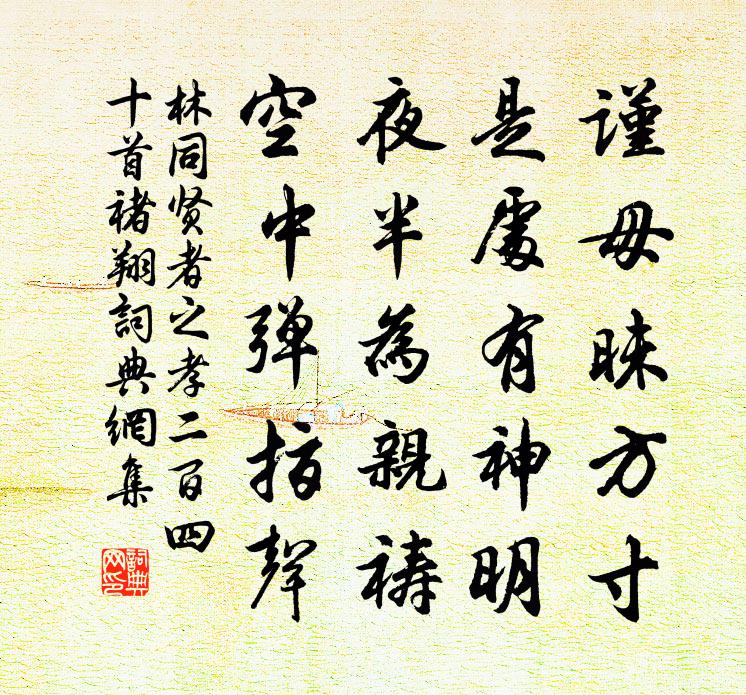 謹毋昧方寸
是處有神明
夜半為親禱
空中弹指聲
林同贤者之孝二百四
十首褚翔詞典網集
詞典
网印